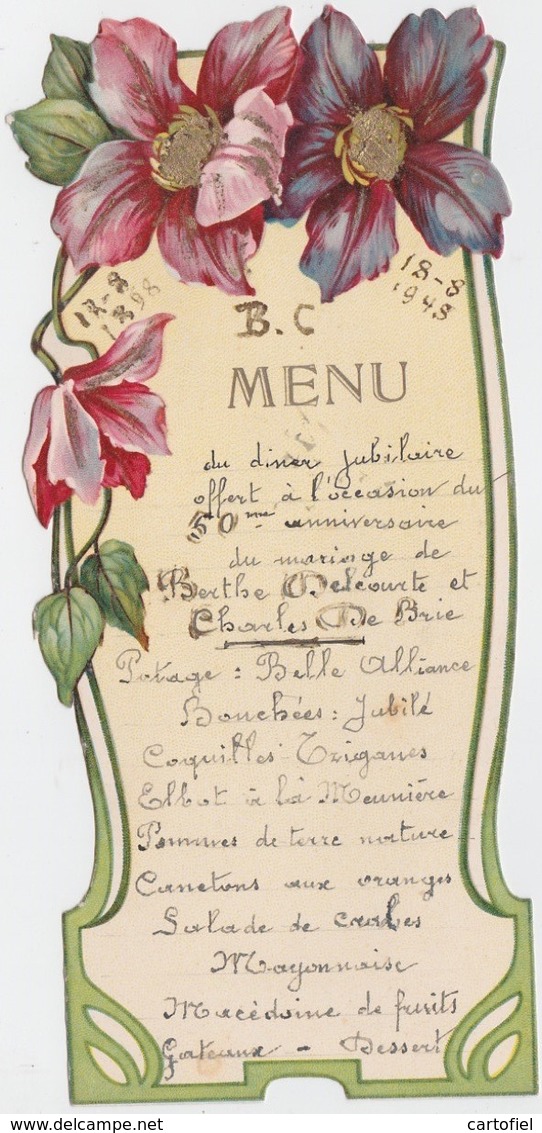 18-8
1898
18-8
1948
B.C
MENU
du diner Jubilaire
offert à l'occasion du
50me anniversaire
du mariage de
Berthe Delcourte et
Charles De Brie
Potage : Belle Alliance
Bouchées : Jubilé
Coquilles Ostiganes
Elbot à la Meunière
Pommes de terre nature
Canetons aux oranges
Salade de crabes
Mayonnaise
Macédoine de fruits
Gateaux - Dessert
cartofiel